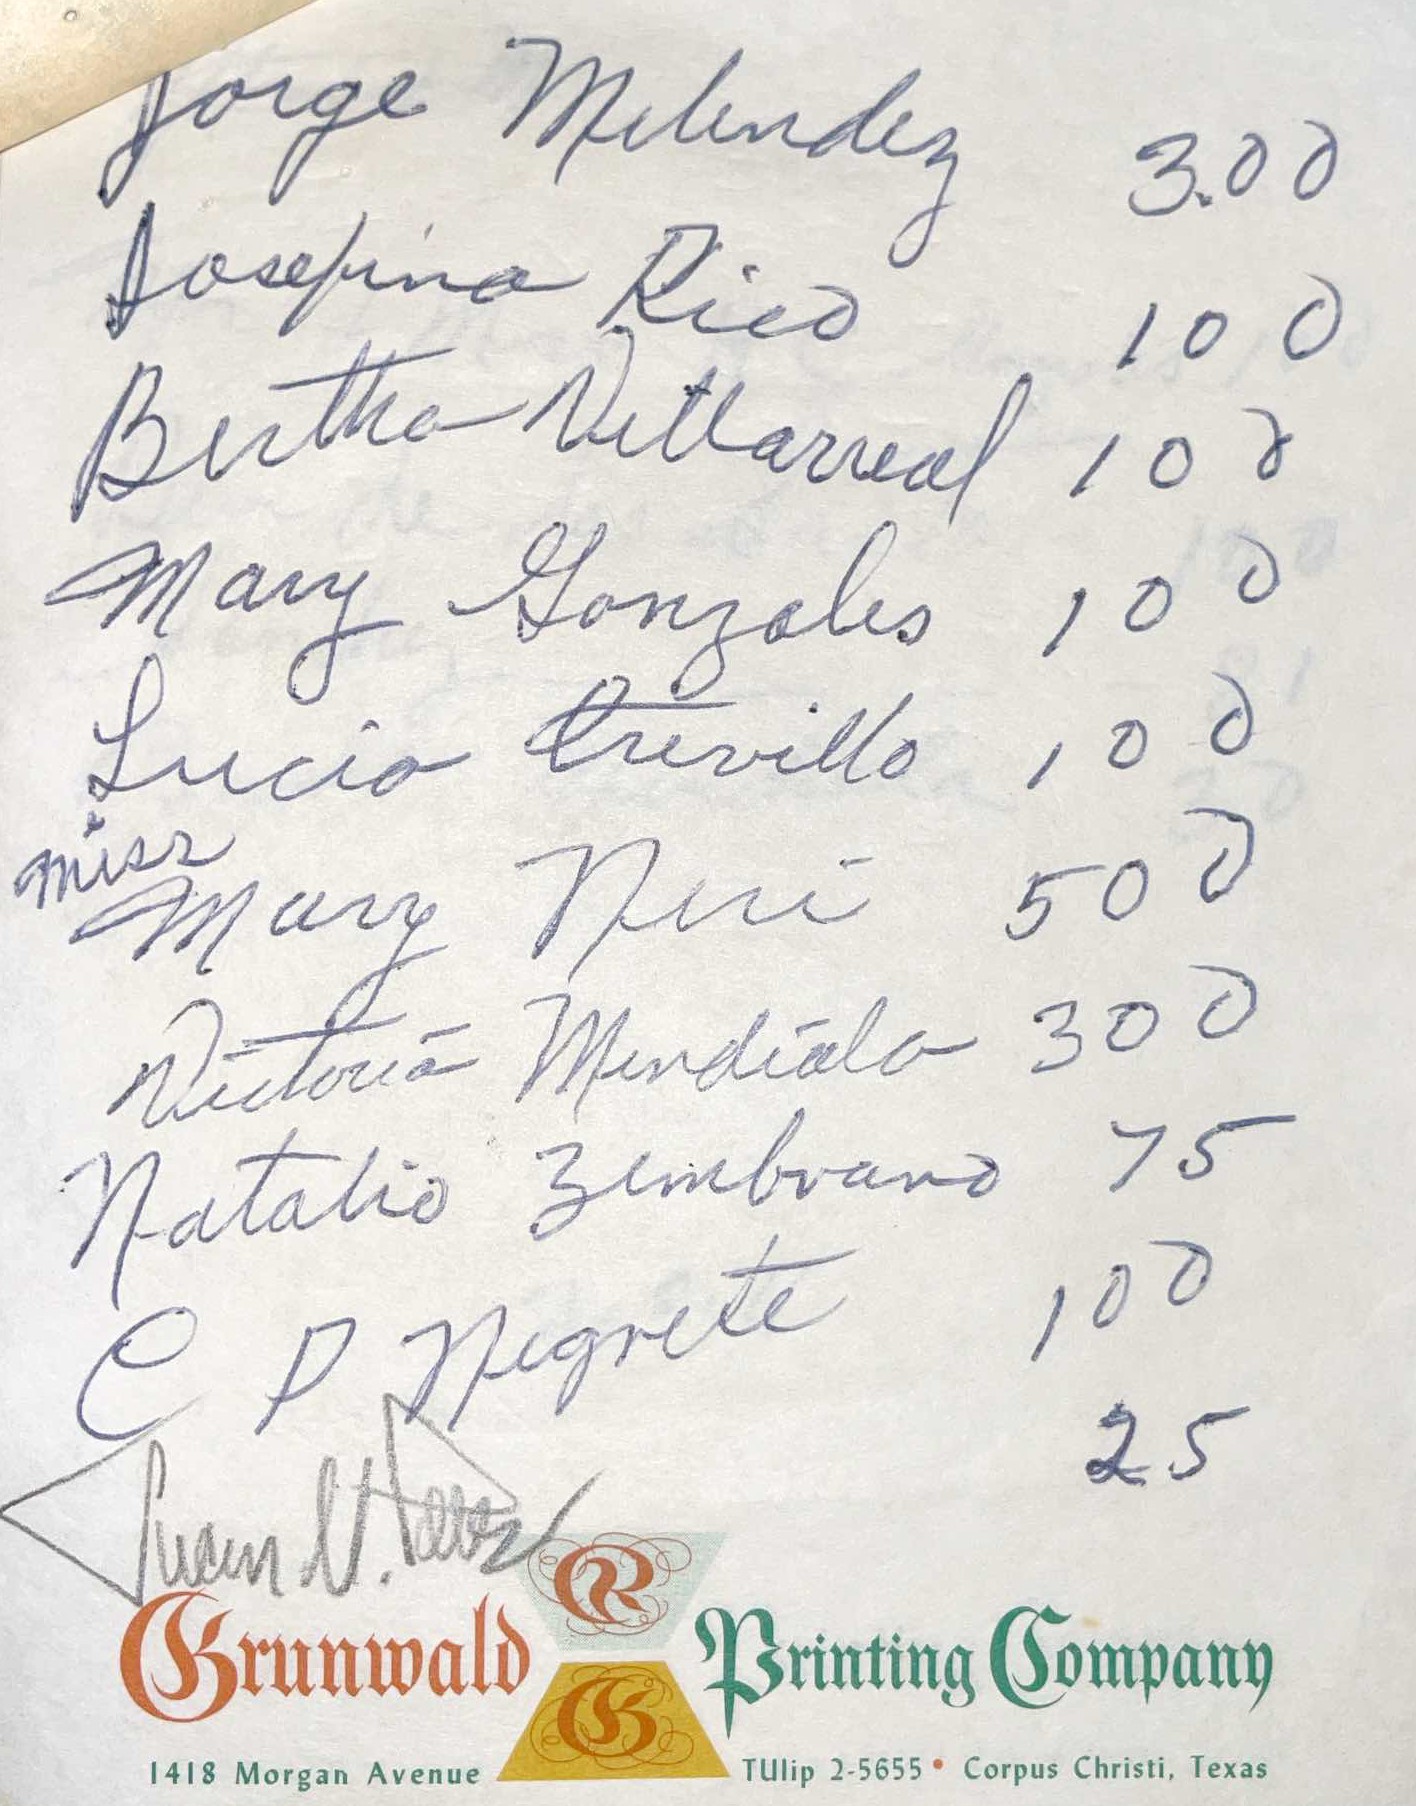 Jorge Melendez 3.00
Josefina Rico 100
Bertha Villarreal 100
Mary Gonzales 100
Lucio Trevillo 100
Miss
Mary Neri 500
Victoria Mendiola 300
Natalio Zembrano 75
C P Negrete 100
25
Juan V.
R
Grunwald Printing Company
G
1418 Morgan Avenue TUlip 2-5655 • Corpus Christi, Texas